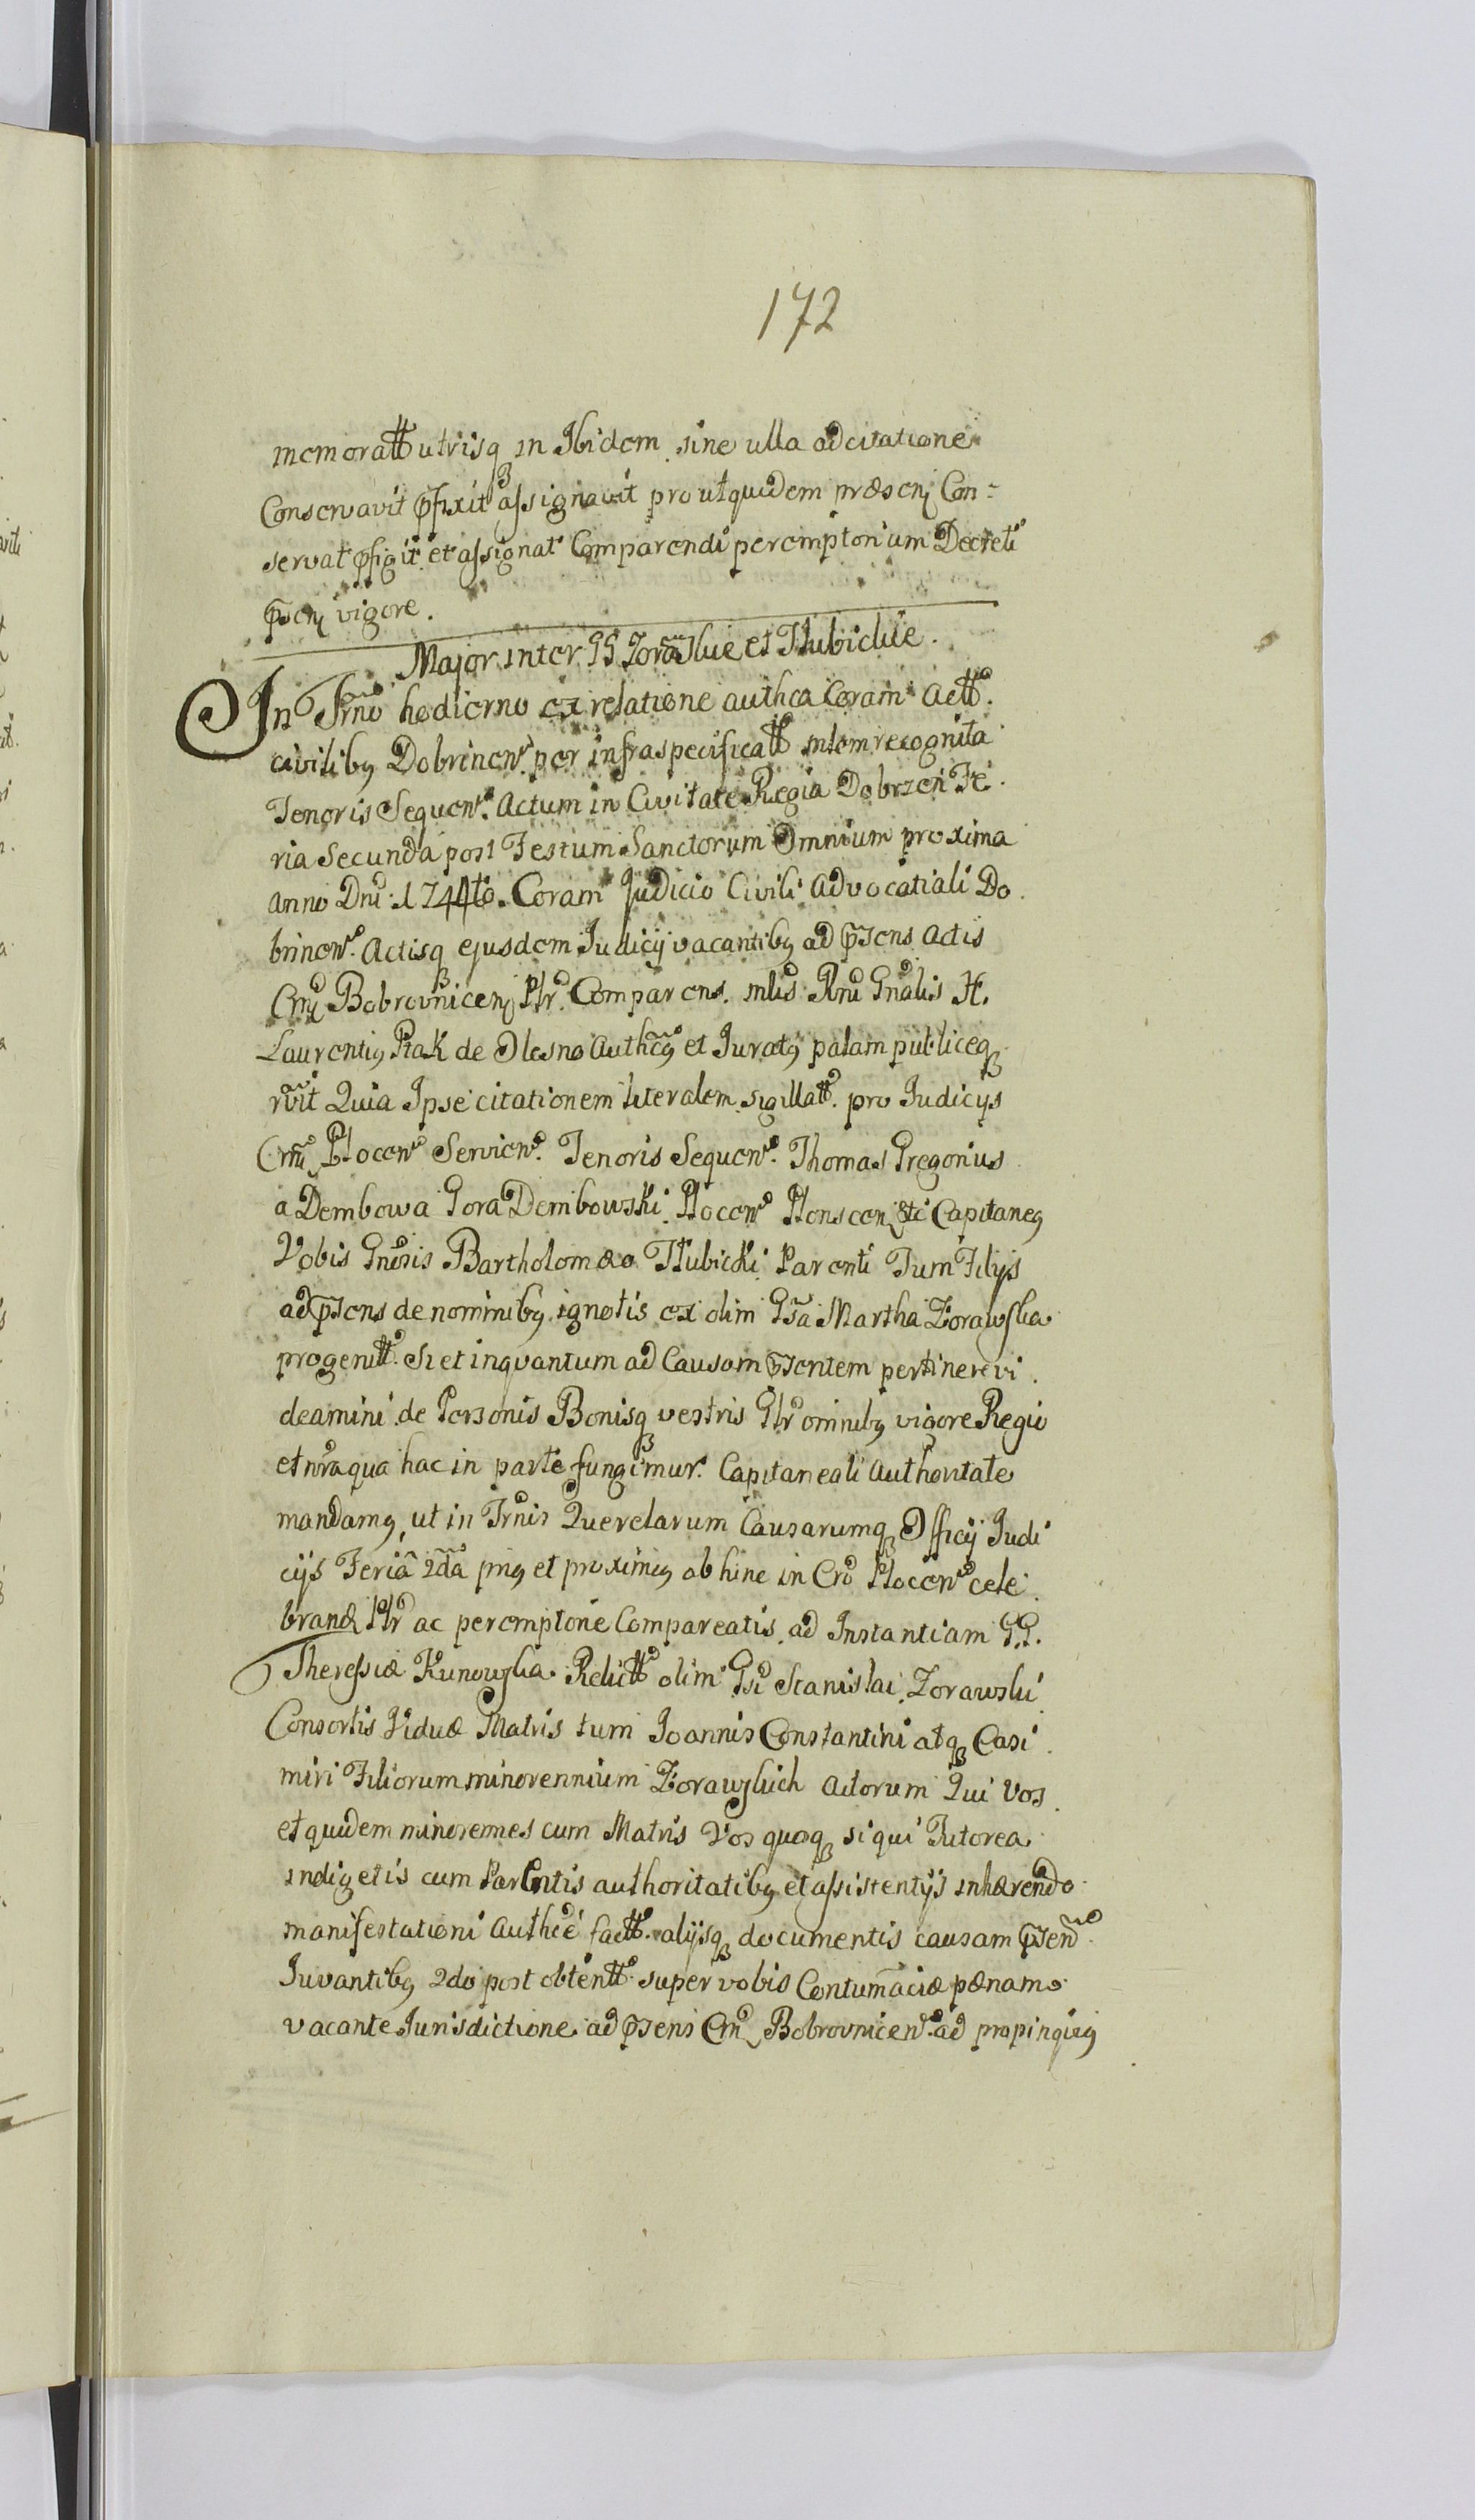 172
memoratt utrisq in Ibidem sine ulla adcitatione
Conservavit pfixit assignavit pro ut quidem præsenӡ Con=
servat pfigit et assignat Comparendi peremptorium Decreti
psenӡ vigore.
Major inter GG Zorawskie et Hubickie.
In Trno hodierno ex relatione authca Coram Actt.
civilibꝰ Dobrinen. per infraspecificatt mlem recognita
Tenoris Sequen. Actum in Civitate Regia Dobrzen Fe.
ria Secunda post Festum Sanctorum Omnium proxima
anno Dni 1744to. Coram Judicio Civili Advocatiali Do.
brinen. Actisq ejusdem Judicij vacantibꝰ ad psens Actis
Bobrovnicen Ptr. Comparens. mlis Rni Gnalis H.
Laurentiꝰ Ptak de Olesno Authcꝰ et Juratꝰ palam publiceq
rvit Quia Ipse citationem literalem sigillatt. pro Judicijs
Plocen Servien. Tenoris Sequen. Thomas Gregorius
a Dembowa Gora Dembowski Plocen Plonscen etc Capitaneꝰ
Vobis Gnosis Bartholomæo Hubicki Parenti Tum Filijs
ad psens de nominibꝰ ignotis ex olim Gsa Martha Zorawska
progenitt. Si et inquantum ad Causam psentem pertinere vi.
deamini de Personis Bonisq vestris Gtr omnibꝰ vigore Regio
et nra qua hac in parte fungimur. Capitaneali Authoritate
mandamꝰ, ut in Trnis Querelarum Causarumq Officij Judi
cijs Feria 2da png et proximeꝰ ab hinc in Cro Plocen cele.
brand Ptr ac peremptorie Compareatis ad Instantiam G.G.
Theressiæ Kunowska Relictt olim Gsi Stanislai Zorawski
Consortis Viduæ Matris tum Joannis Constantini atq Casi.
miri Filiorum minorennium Zorawskich Actorum Qui Vos
et quidem minorennes cum Matris Vos quoq si qui Tutorea
indigetis cum Parentis authoritatibꝰ et assistentijs inhærendo
manifestationi Authce factt. alijsq documentis causam psen.
Juvantibꝰ 2do post obtentt super vobis Contumaciæ pænam
vacante Jurisdictione ad psens Bobrovnicen. ad propinqueꝰ